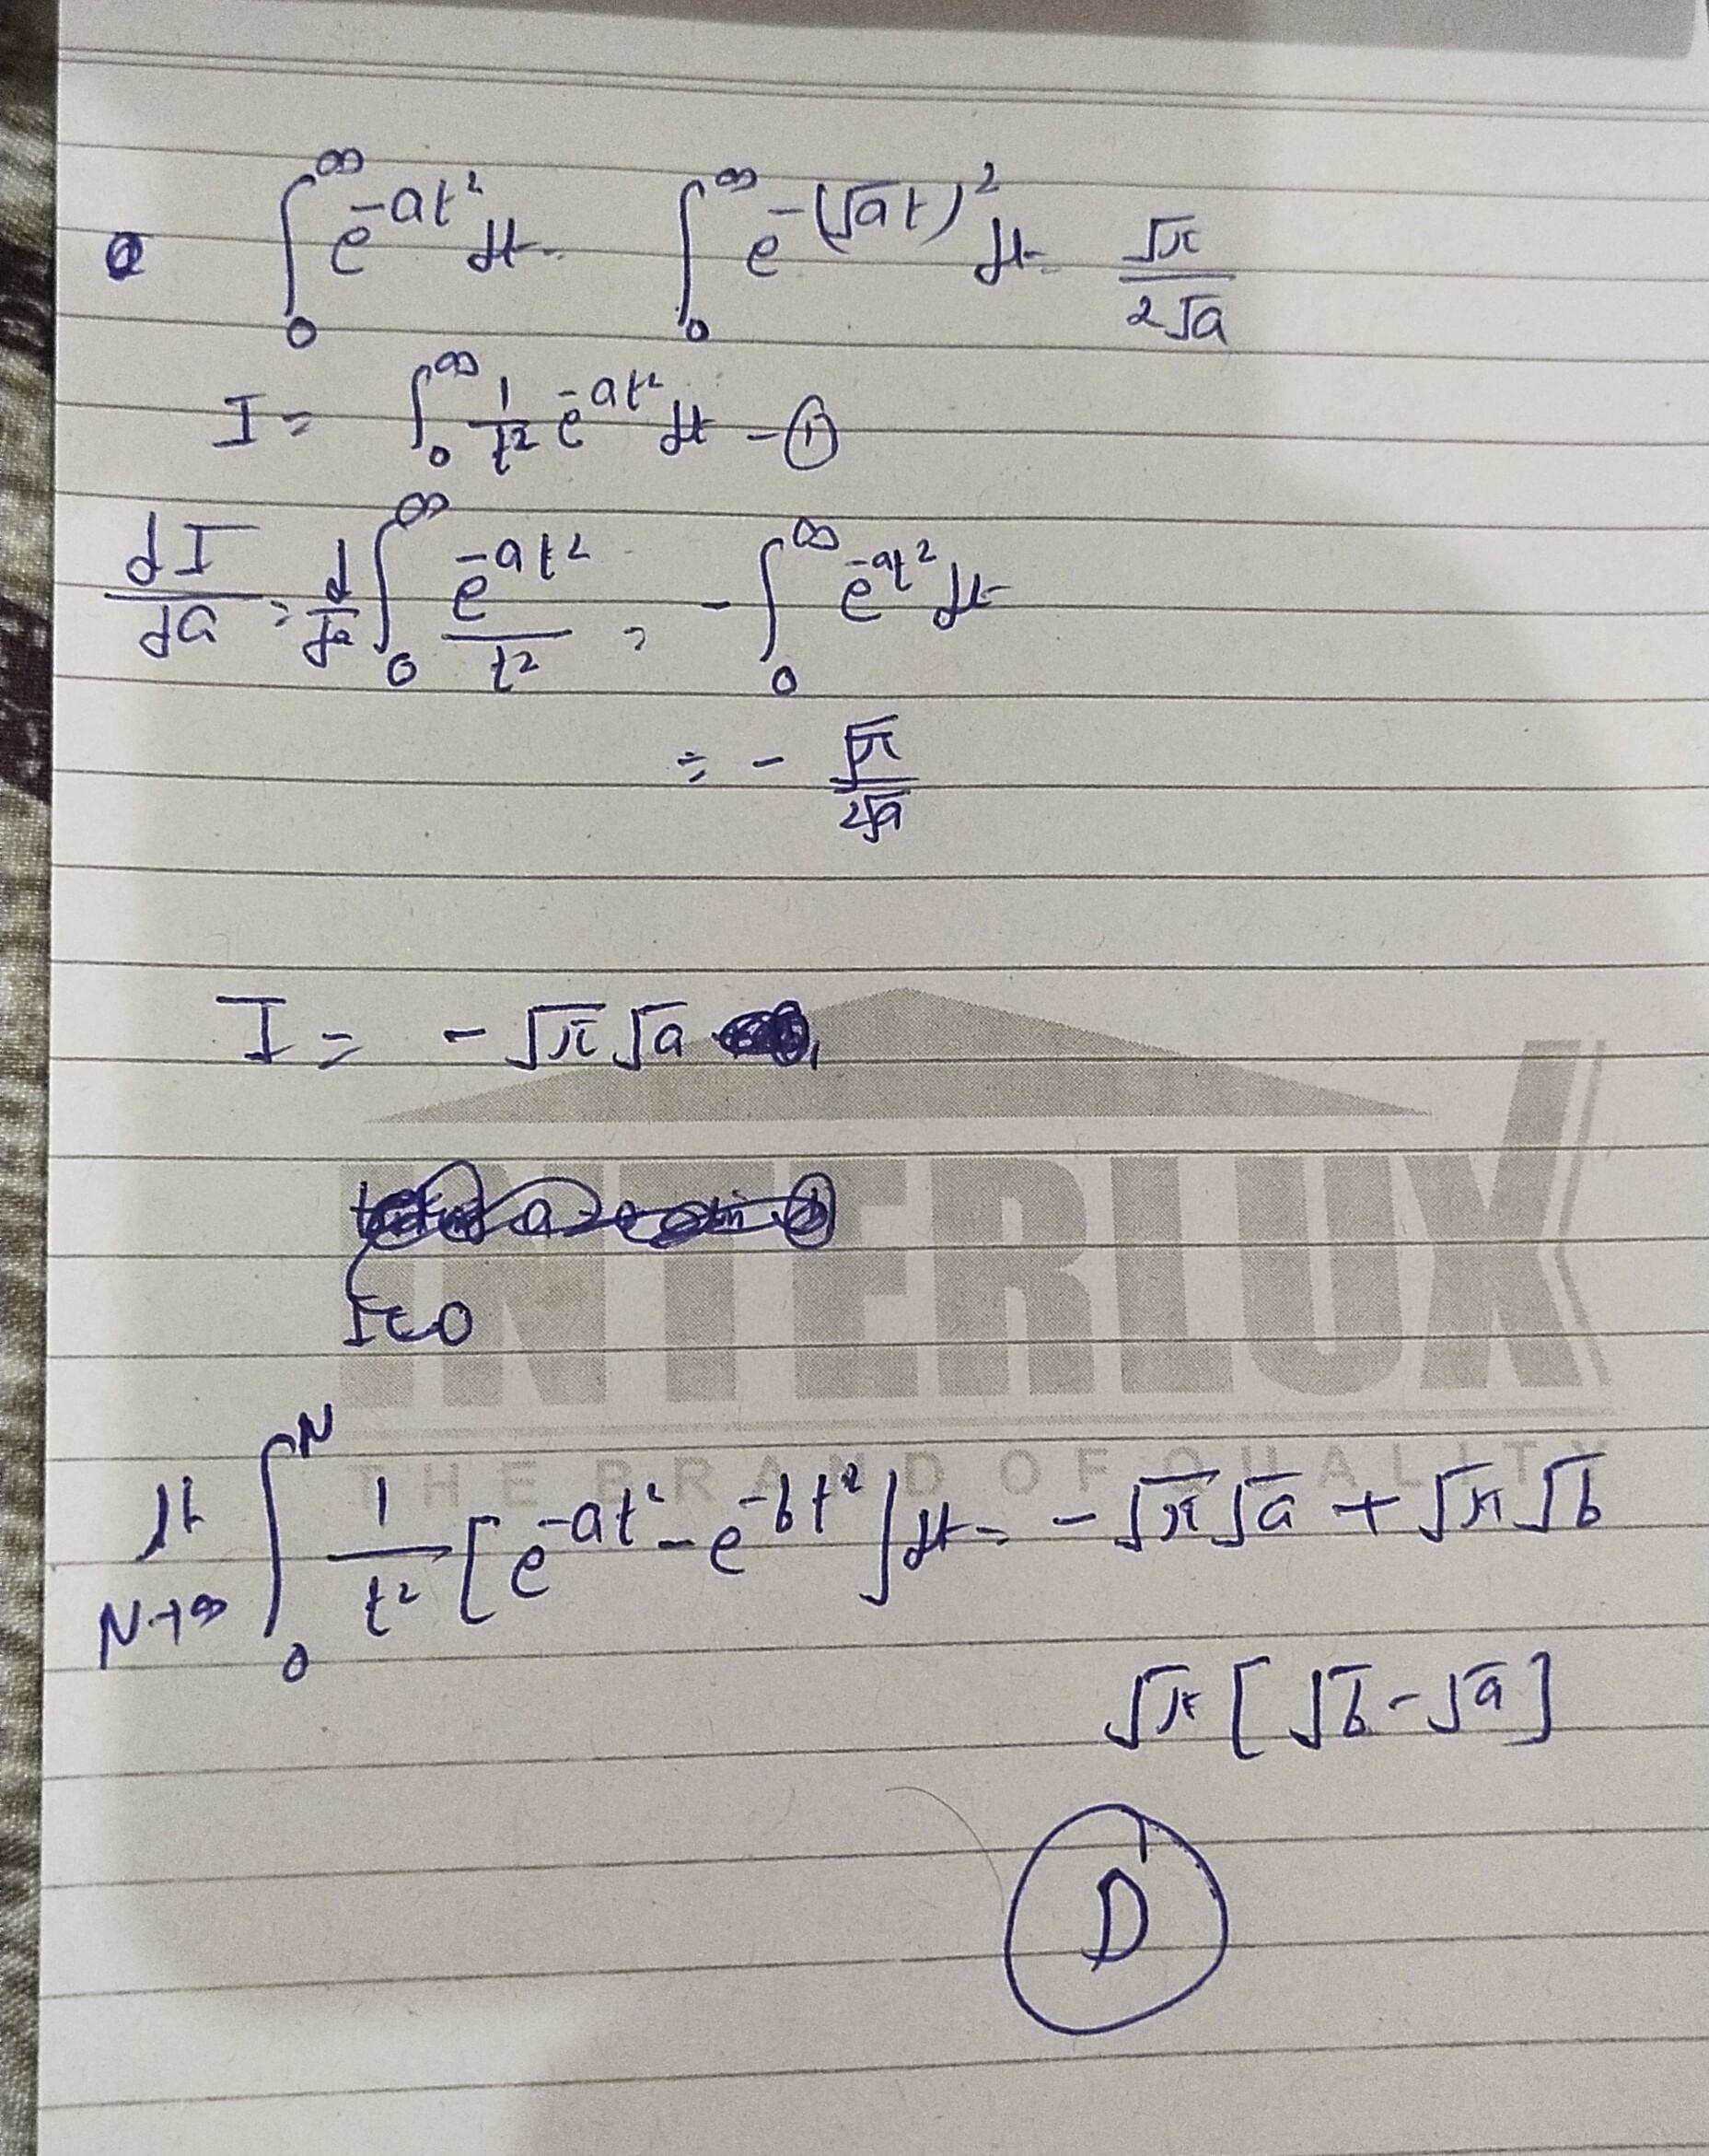 ∫₀^∞ e^{-at²} dt = ∫₀^∞ e^{-(√at)²} dt = √π / 2√a
I = ∫₀^∞ 1/t² e^{-at²} dt - ①
dI/da = d/da ∫₀^∞ e^{-at²}/t² = - ∫₀^∞ e^{-at²} dt
= - √π / 2√a
I = - √π √a
INTERLUX
THE BRAND OF QUALITY
lt N→∞ ∫₀^N 1/t² [e^{-at²} - e^{-bt²}] dt = - √π √a + √π √b
√π [√b - √a]
D